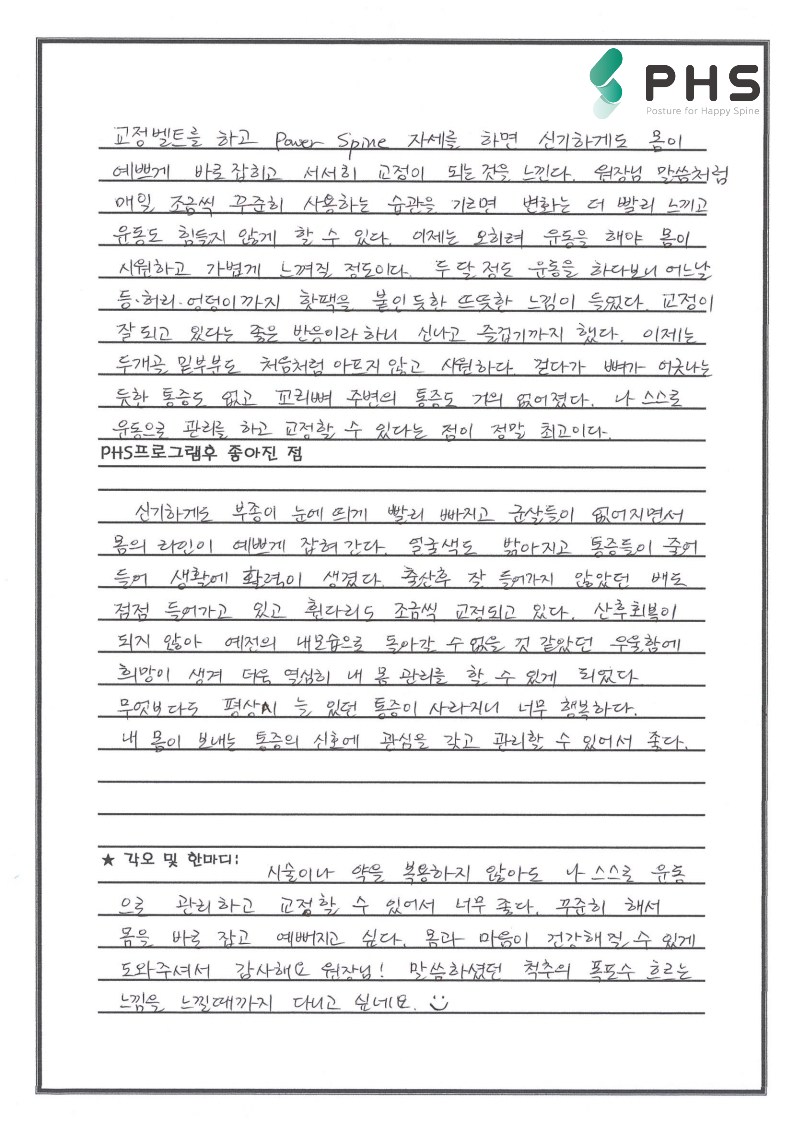 PHS
Posture for Happy Spine
교정벨트를 하고 Power Spine 자세를 하면 신기하게도 몸이
예쁘게 바로 잡히고 서서히 교정이 되는 것을 느낀다. 원장님 말씀처럼
매일 조금씩 꾸준히 사용하는 습관을 기르면 변화는 더 빨리 느끼고
운동도 힘들지 않게 할 수 있다. 이제는 오히려 운동을 해야 몸이
시원하고 가볍게 느껴질 정도이다. 두 달 정도 운동을 하다보니 어느날
등·허리·엉덩이까지 핫팩을 붙인 듯한 뜨뜻한 느낌이 들었다. 교정이
잘 되고 있다는 좋은 반응이라 하니 신나고 즐겁기까지 했다. 이제는
두개골 밑부분도 처음처럼 아프지 않고 시원하다. 걷다가 뼈가 어긋나는
듯한 통증도 없고 꼬리뼈 주변의 통증도 거의 없어졌다. 나 스스로
운동으로 관리를 하고 교정할 수 있다는 점이 정말 최고이다.
PHS프로그램후 좋아진 점
신기하게도 부종이 눈에 띄게 빨리 빠지고 군살들이 없어지면서
몸의 라인이 예쁘게 잡혀 간다. 얼굴색도 밝아지고 통증들이 줄어
들어 생활에 활력이 생겼다. 출산후 잘 들어가지 않았던 배도
점점 들어가고 있고 휜다리도 조금씩 교정되고 있다. 산후회복이
되지 않아 예전의 내모습으로 돌아갈 수 없을 것 같았던 우울함에
희망이 생겨 더욱 열심히 내 몸 관리를 할 수 있게 되었다
무엇보다도 평상시 늘 있던 통증이 사라지니 너무 행복하다.
내 몸이 보내는 통증의 신호에 관심을 갖고 관리할 수 있어서 좋다.
★ 각오 및 한마디: 시술이나 약을 복용하지 않아도 나 스스로 운동
으로 관리하고 교정할 수 있어서 너무 좋다. 꾸준히 해서
몸을 바로 잡고 예뻐지고 싶다. 몸과 마음이 건강해질 수 있게
도와주셔서 감사해요 원장님! 말씀하셨던 척추의 폭포수 흐르는
느낌을 느낄때까지 다니고 싶네요.